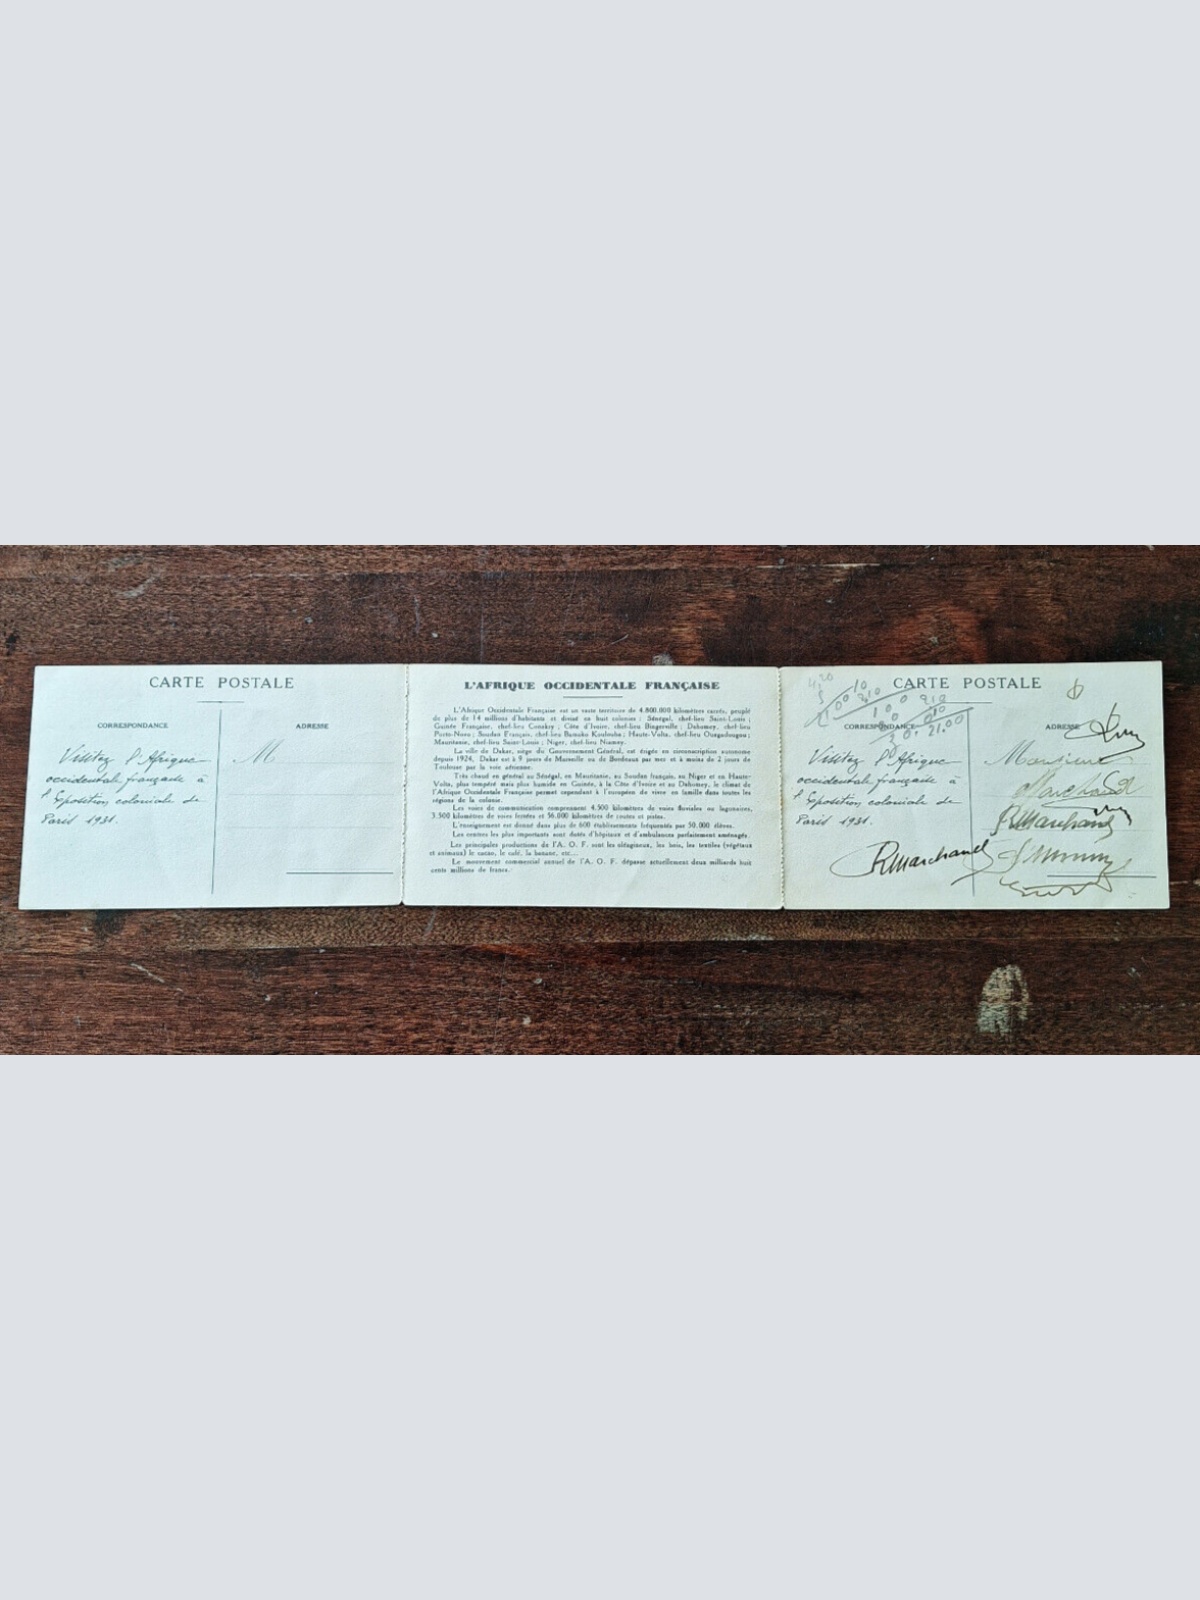 CARTE POSTALE
CORRESPONDANCE
ADRESSE
Visitez l'Afrique
occidentale française à
l'Exposition coloniale de
Paris 1931.
M
L'AFRIQUE OCCIDENTALE FRANÇAISE
L'Afrique Occidentale Française est un vaste territoire de 4.800.000 kilomètres carrés, peuplé
de plus de 14 millions d'habitants et divisé en huit colonies : Sénégal, chef-lieu Saint-Louis ;
Guinée Française, chef-lieu Conakry ; Côte d'Ivoire, chef-lieu Bingerville ; Dahomey, chef-lieu
Porto-Novo ; Soudan Français, chef-lieu Bamako Koulouba ; Haute-Volta, chef-lieu Ouagadougou ;
Mauritanie, chef-lieu Saint-Louis ; Niger, chef-lieu Niamey.
La ville de Dakar, siège du Gouvernement Général, est érigée en circonscription autonome
depuis 1924. Dakar est à 9 jours de Marseille ou de Bordeaux par mer et à moins de 2 jours de
Toulouse par la voie aérienne.
Très chaud en général au Sénégal, en Mauritanie, au Soudan français, au Niger et en Haute-
Volta, plus tempéré mais plus humide en Guinée, à la Côte d'Ivoire et au Dahomey, le climat de
l'Afrique Occidentale Française permet cependant à l'européen de vivre en famille dans toutes les
régions de la colonie.
Les voies de communication comprennent 4.500 kilomètres de voies fluviales ou lagunaires,
3.500 kilomètres de voies ferrées et 56.000 kilomètres de routes et pistes.
L'enseignement est donné dans plus de 600 établissements fréquentés par 50.000 élèves.
Les centres les plus importants sont dotés d'hôpitaux et d'ambulances parfaitement aménagés.
Les principales productions de l'A. O. F. sont les oléagineux, les bois, les textiles (végétaux
et animaux) le cacao, le café, la banane, etc...
Le mouvement commercial annuel de l'A. O. F. dépasse actuellement deux milliards huit
cents millions de francs.
CARTE POSTALE
CORRESPONDANCE
ADRESSE
Visitez l'Afrique
occidentale française à
l'Exposition coloniale de
Paris 1931.
21.00
Monsieur
Marchand
RMarchand
RMarchand